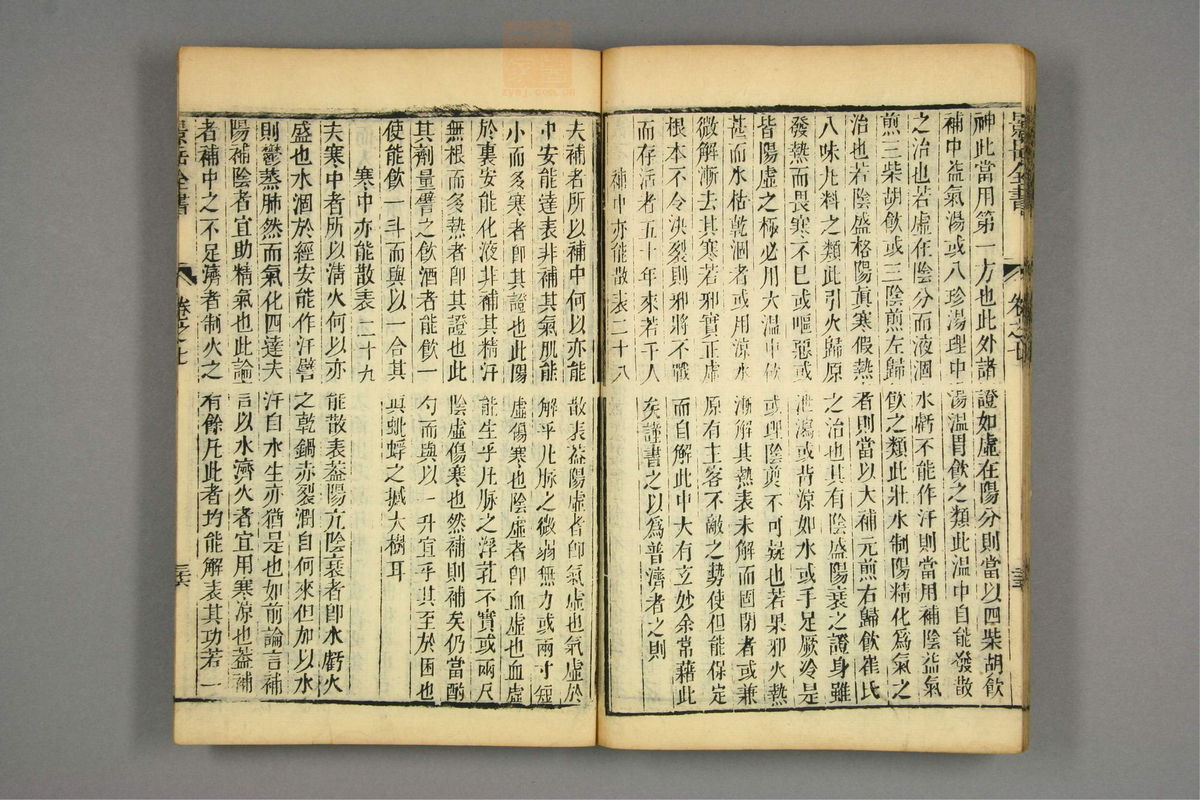 景岳全書
卷之七
神此當用第一方也此外諸證如虛在陽分則當以四柴胡飲
補中益氣湯或八珍湯理中湯溫胃飲之類此溫中自能發散
之治也若虛在陰分而液涸水虧不能作汗則當用補陰益氣
煎三柴胡飲或三陰煎左歸飲之類此壯水制陽精化為氣之
治也若陰盛格陽真寒假熱者則當以大補元煎右歸飲崔氏
八味丸料之類此引火歸原之治也其有陰盛陽衰之證身雖
發熱而畏寒不已或嘔惡或泄瀉或背涼如水或手足厥冷是
皆陽虛之極必用大溫中飲或理陰煎不可疑也若果邪火熱
甚而水枯乾涸者或用涼水漸解其熱表未解而固閉者或兼
微解漸去其寒若邪實正虛原有主客不敵之勢使但能保定
根本不令決裂則邪將不戰而自解此中大有玄妙余常藉此
而存活者五十年來若干人矣謹書之以為普濟者之則
補中亦能散表二十八
夫補者所以補中何以亦能散表蓋陽虛者即氣虛也氣虛於
中安能達表非補其氣肌能解乎凡脉之微弱無力或兩寸短
小而多寒者即其證也此陽虛傷寒也陰虛者即血虛也血虛
於裏安能化液非補其精汗能生乎凡脉之浮芤不實或兩尺
無根而多熱者即其證也此陰虛傷寒也然補則補矣仍當酌
其劑量譬之飲酒者能飲一勺而與以一升宜乎其至於困也
使能飲一斗而與以一合其與蚍蜉之撼大樹耳
寒中亦能散表二十九
夫寒中者所以清火何以亦能散表蓋陽亢陰衰者即水虧火
盛也水涸於經安能作汗譬之乾鍋赤裂潤自何來但加以水
則鬱蒸沛然而氣化四達夫汗自水生亦猶是也如前論言補
陽補陰者宜助精氣也此論言以水濟火者宜用寒涼也蓋補
者補中之不足濟者制火之有餘凡此者均能解表其功若一
景岳全書
卷之七
三六